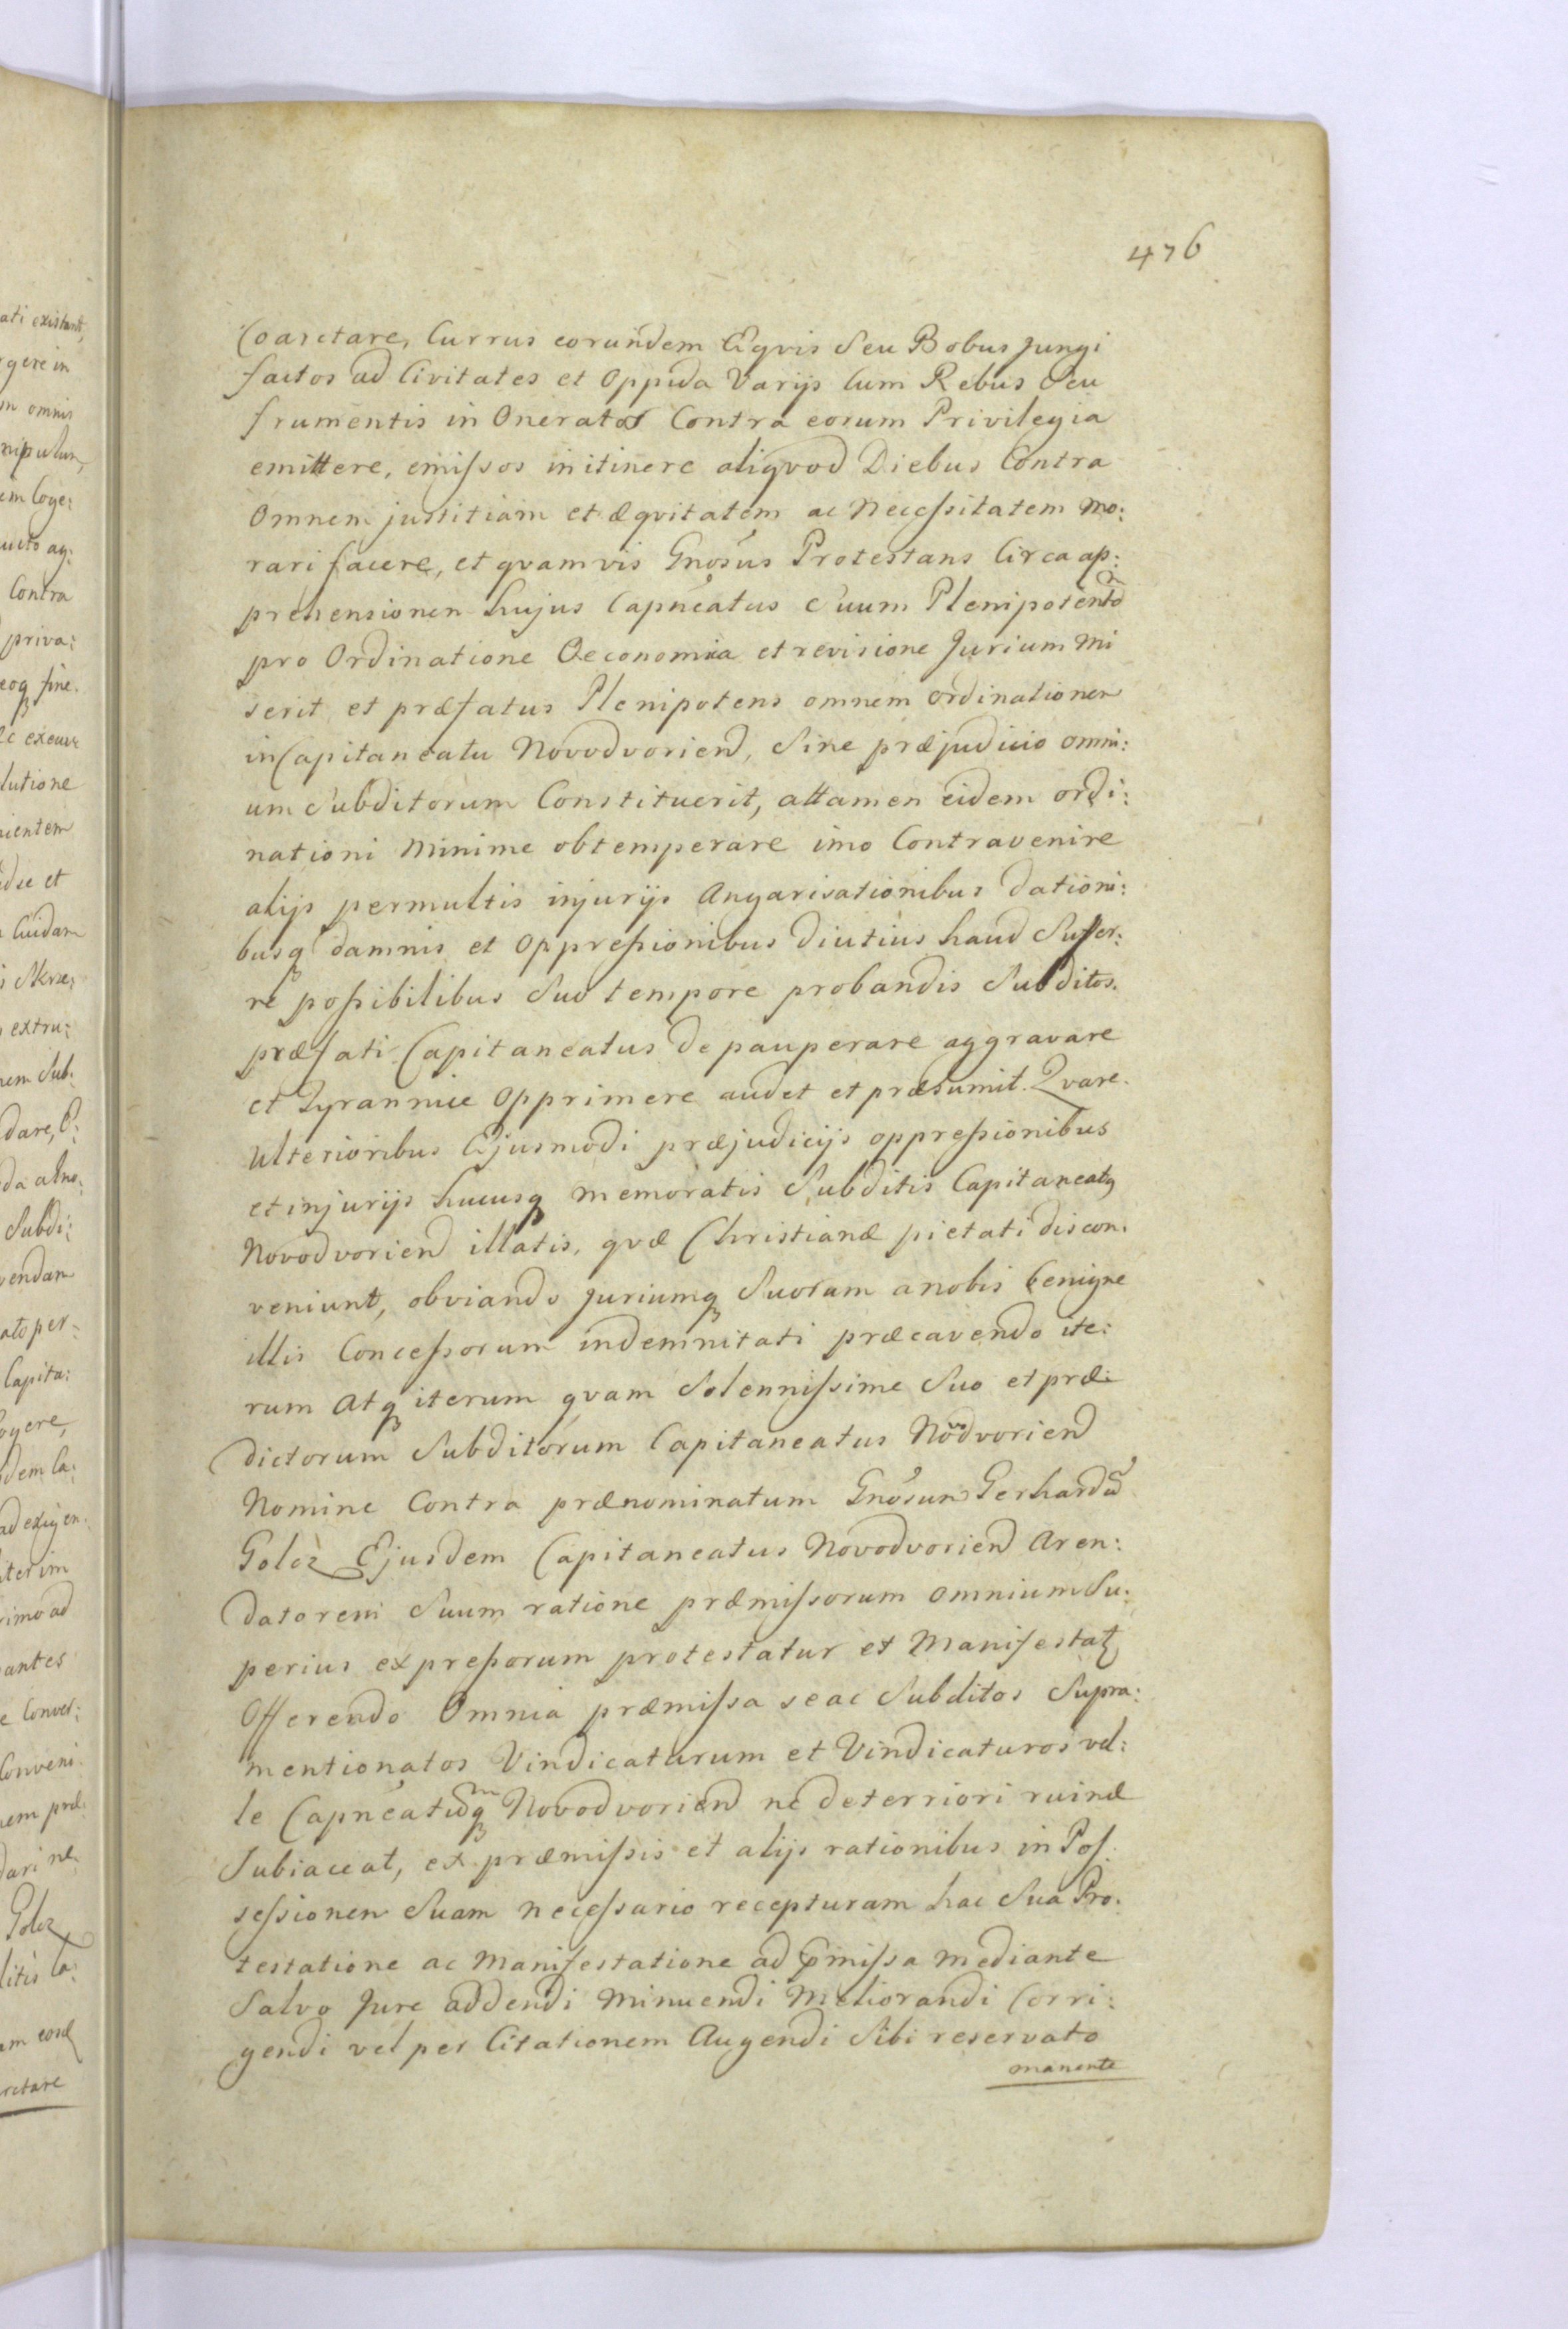 476
Coarctare, Currus eorundem Eqvis Seu Bobus Jungi
factos ad Civitates et Oppida Varijs Cum Rebus Seu
frumentis in Oneratos Contra eorum Privilegia
emittere, emissos in itinere aliqvod Diebus Contra
Omnem justitiam et æqvitatem ac Necessitatem mo:
rari facere, et qvamvis Gnosus Protestans Circa ap:
prehensionen hujus Capneatus Suum Plenipotento
pro Ordinatione Oeconomia et revisione Jurium mi
serit et præfatus Plenipotens omnem ordinationen
in Capitaneatu Novodvoriend, Sine præjudicio omni:
um Subditorum Constituerit, attamen eidem ordi:
nationi Minime obtemperare imo Contravenire
alijs permultis injurijs Angarisationibus dationi:
busq damnis et Oppressionibus diutius haud Suffer:
re possibilibus Suo tempore probandis Subditos.
præfati Capitaneatus depauperare aggravare
et Tyrannice Opprimere audet et præsumit. Qvare.
Ulterioribus Ejusmodi præjudicijs oppressionibus
et injurijs hucusq memoratis Subditis Capitaneatus
Novodvoriend illatis, qvæ Christianæ pietati discon.
veniunt, obviando Juriumq Suorum a nobis benigne
illis Concessorum indemnitati præcavendo ite:
rum Atq iterum qvam Solennissime Suo et præ:
dictorum Subditorum Capitaneatus Novodvoriend
Nomine Contra prænominatum Gnosun Gerhardũ
Golcz Ejusdem Capitaneatus Novodvoriend Aren:
datorem Suum ratione præmissorum omnium Su:
perius expressorum protestatur et Manifestat
Offerendo Omnia præmissa se ac Subditos Supra:
mentionatos Vindicaturum et Vindicaturos vel:
le Capneatumq Novodvoriend ne deterriori ruinæ
Subiaceat, ex præmissis et alijs rationibus in Pos.
sessionen Suam necessario recepturam hac Sua Pro.
testatione ac Manifestatione ad præmissa mediante
Salvo Jure addendi Minuendi Meliorandi Corri:
gendi vel per Citationem Augendi Sibi reservato
manente
ati existant,
gere in
omnis
nipulum,
em Coge:
ucto ag:
Contra
priva:
eoq sine.
exeunt
lutione
nientem
et
Cuidam
Skrze:
extru:
nem Sub.
dare, C:
da abno:
Subdi:
endam
ato per-
Capita:
ogere,
dem Ca:
ad exigen.
terim
rimo ad
antes
e Conver:
Conveni
nem præ:
dari ne.
Golcz
litis Ca:
am eosd
rctare